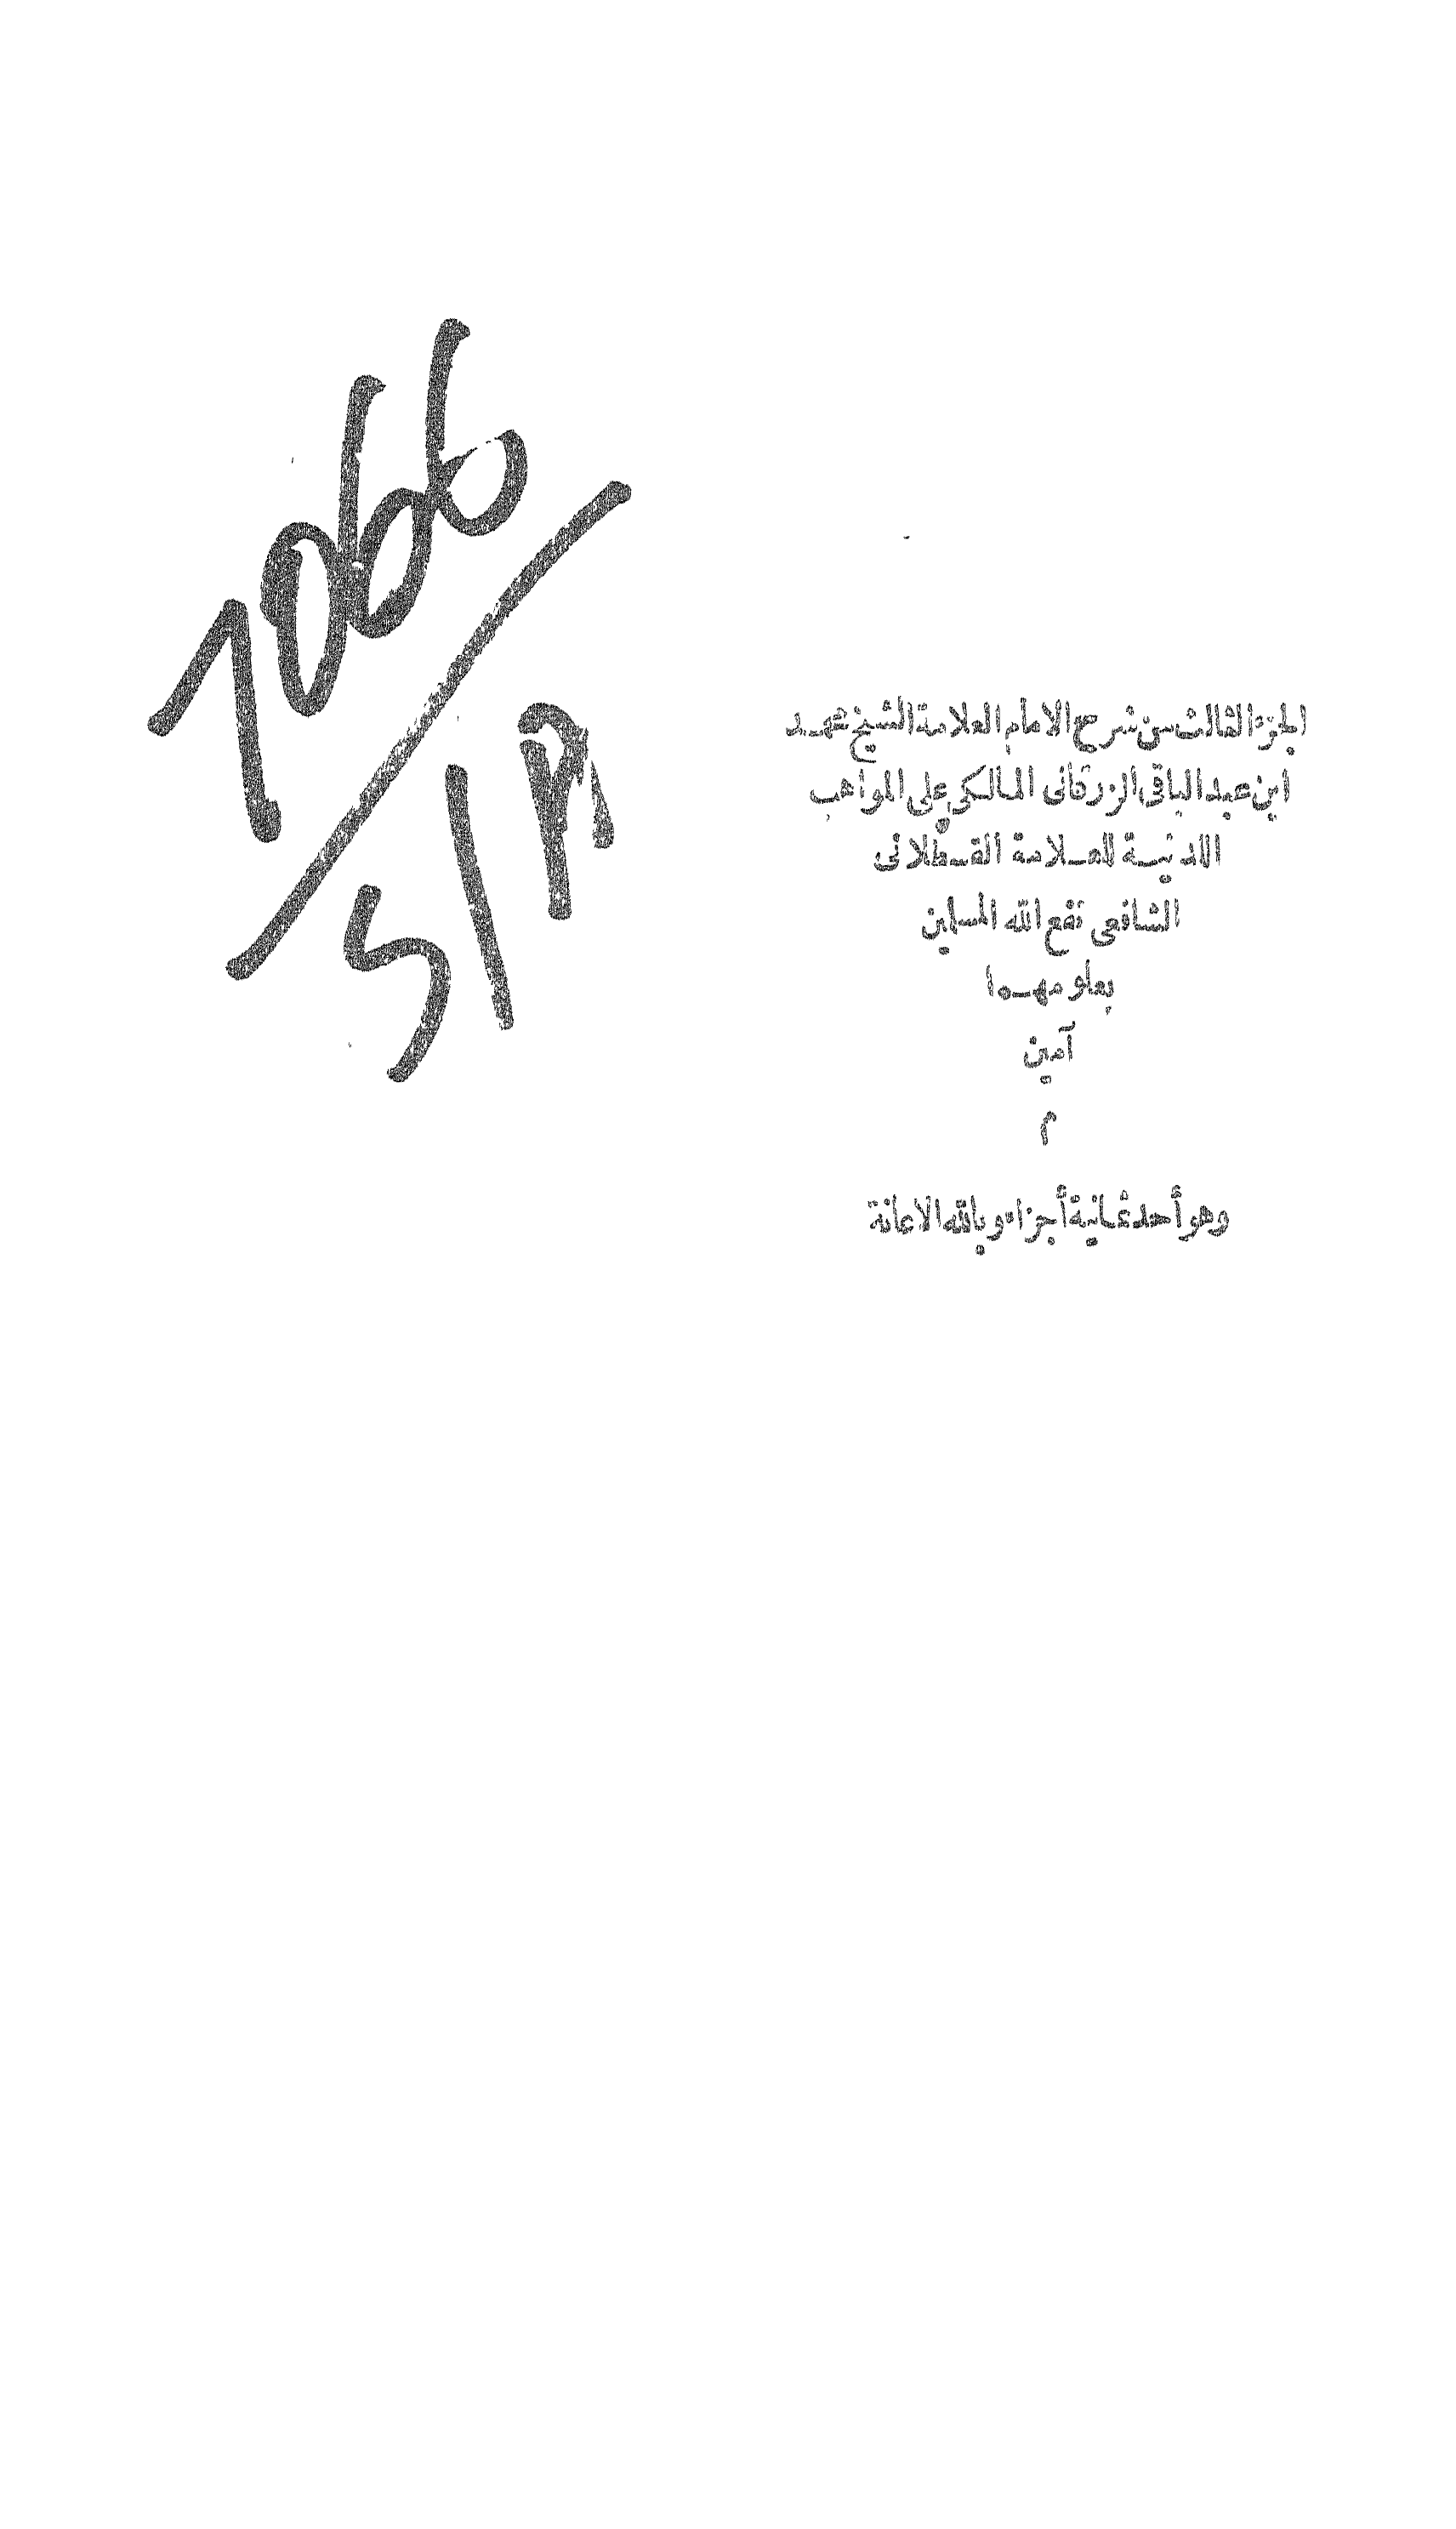 1066
51P
الجزء الثالث من شرح الامام العلامة الشيخ محمد
ابن عبد الباقى الزرقانى المالكى على المواهب
اللدنية للعلامة القسطلانى
الشافعى نفع الله المسلمين
بعلومهما
آمين
م
وهو أحد ثمانية أجزاء وبالله الاعانة